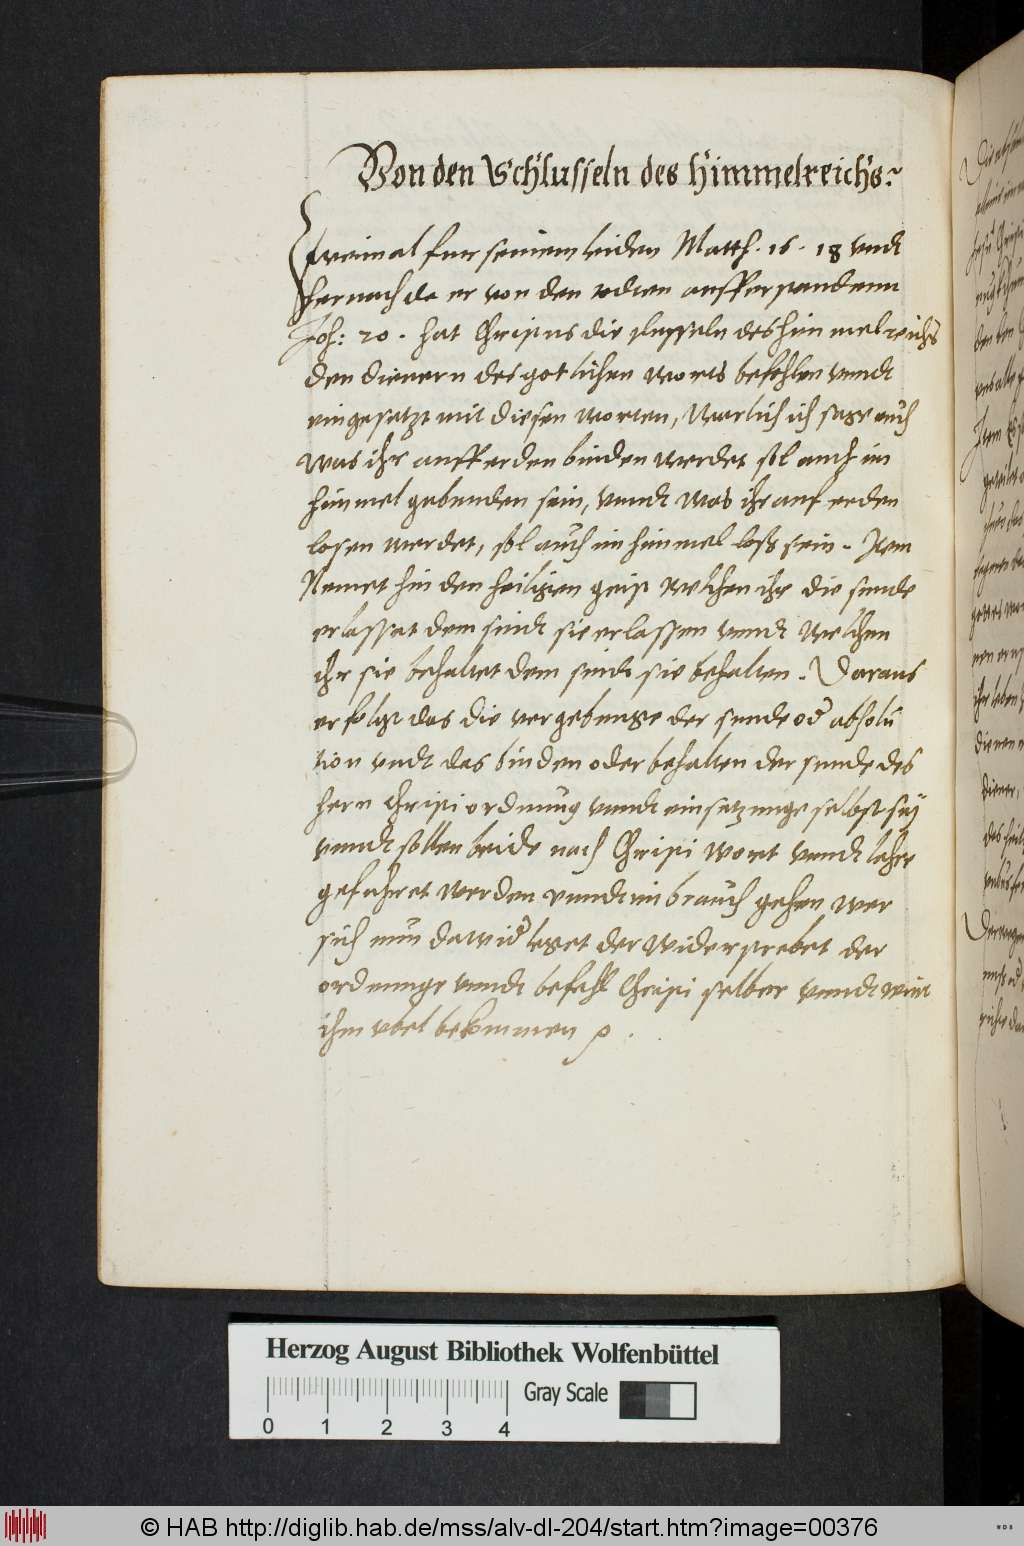 Von den Schlusseln des Himmelreichs.
Zweimal fur seinem leiden Matth. 16. 18 undt
hernach da er von den todten aufferstandenn
Joh: 20. hat Christus die slusseln des himmelreichs
den dienern des gotlichen worts befohlen unndt
eingesetzt mit diesen worten, Warlich ich sage euch
Was ihr auff erden binden werdet sol auch im
himmel gebunden sein, unndt was ihr auf erden
losen werdet, sol auch im himmel loss sein. Item
Nemet hin den heiligen geist welchen ihr die sunde
erlasset dem sindt sie erlassen unndt welchen
ihr sie behaltet dem sindt sie behalten. Daraus
erfolgt das die vergebunge der sunde od absolu
tion undt das binden oder behalten der sunde des
hern Christi ordnung unndt einsetzunge selbst sey
unndt sollen beide nach Christi wort unndt lehre
gefuhret werden unndt im brauch gehen wer
sich nun dawid leget der widerstrebet der
ordnunge unndt befehl Christi selber unndt wirt
ihm ubel bekommen
Herzog August Bibliothek Wolfenbüttel
Gray Scale
0 1 2 3 4
© HAB http://diglib.hab.de/mss/alv-dl-204/start.htm?image=00376